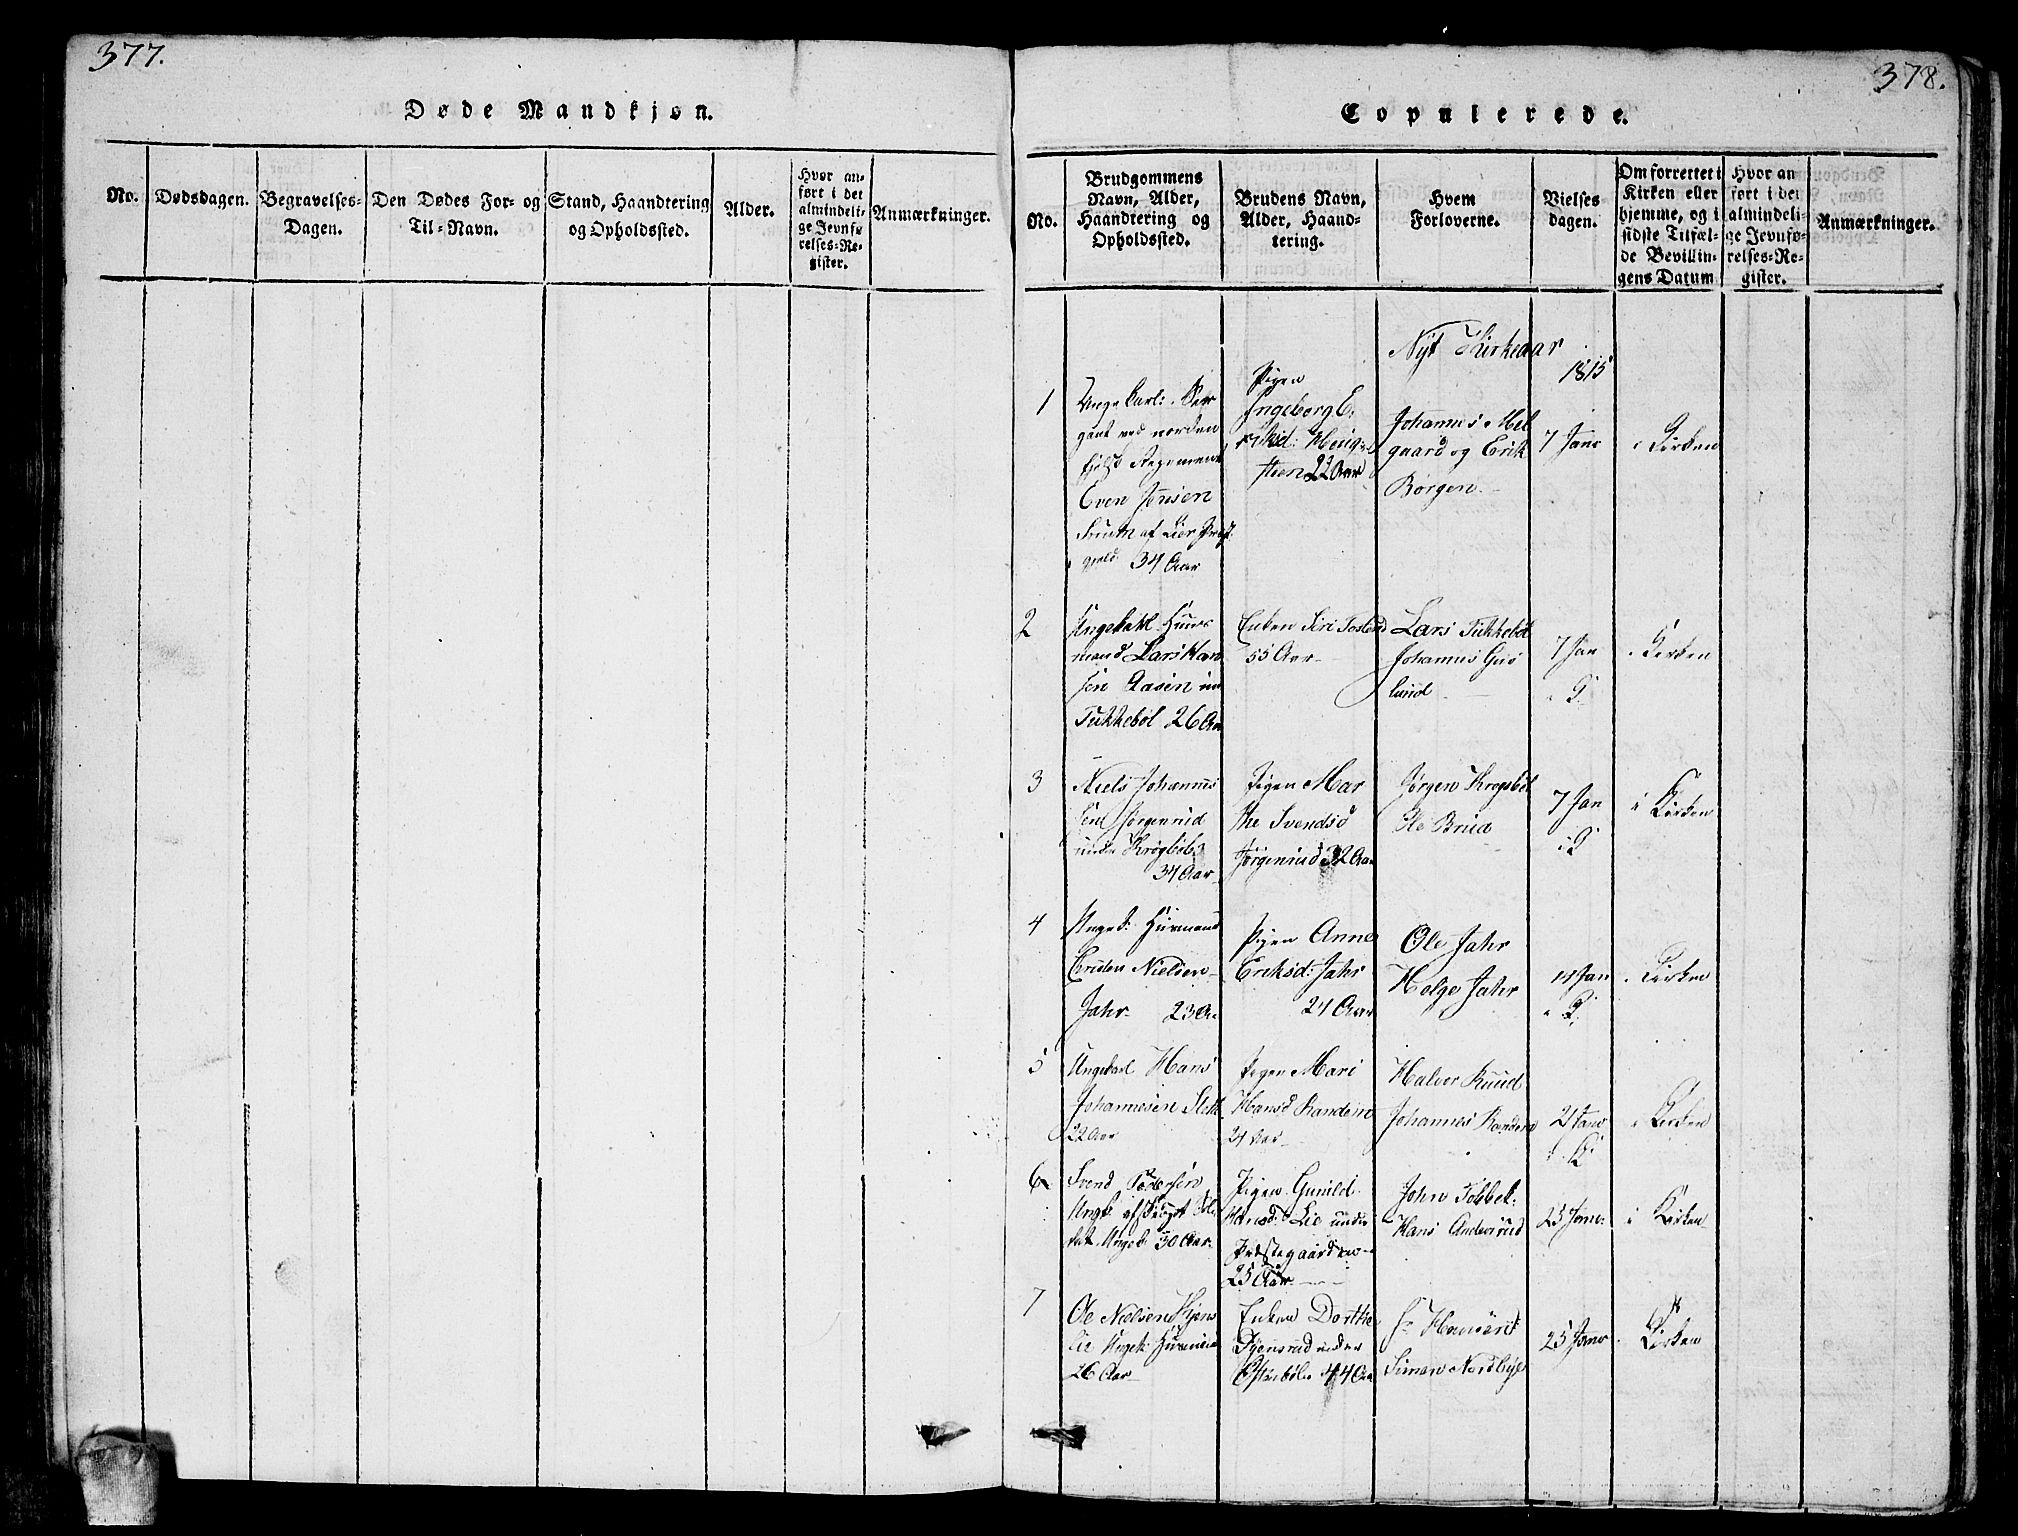 377.
Døde Mandkjøn.
No.
Dødsdagen.
Begravelses-
Dagen.
Den Dødes For- og
Til-Navn.
Stand, Haandtering
og Opholdssted.
Alder.
Hvor an-
ført i det
almindeli-
ge Jevnfø-
relses-Re-
gister.
Anmærkninger.
378.
Copulerede.
No.
Brudgommens
Navn, Alder,
Haandtering og
Opholdssted.
Brudens Navn,
Alder, Haand-
tering.
Hvem
Forloverne.
Vielses
dagen.
Om forrettet i
Kirken eller
hjemme, og i
sidste Tilfæl-
de Bevillin-
gens Datum
Hvor an
ført i det
almindeli-
ge Jevnfø-
relses-Re-
gister.
Anmærkninger.
Nyt Kirkeaar
1815
1
Unge Karl: Ser
gant ved norden
fjelst Regement
Even Jensen
af Lier Præst
gield 34 Aar
Pigen
Ingeborg E
riksd:
22 Aar
Johannes Mel
gaard og Erik
Borgen
7 Janr
i Kirken
2
Ungekarl Huus
mand Lars Han
sen Aasen un
Tukkebøl 26 Aar
Enken Siri
55 Aar
Lars Tukkebøl
Johannes Gus
lund
7 Jan
i Kirken
3
Niels Johannes
sen Jørgenrud
under Krogsbøl
34 Aar
Pigen Mar
the Svendsd
Jørgenrud 32 Aar
Jørgen Krogsbøl
Ole Brud
7 Jan
i Kirken
4
Unge k: Husmand
Cristen Nielsen
Jahr 23 Aa
Pigen Anne
Eriksd: Jahr
24 Aar
Ole Jahr
Helge Jahr
14 Jan
i Kirken
5
Ungekarl Hans
Johannesen
22 Aar
Pigen Mari
Hansd Randem
24 Aar
Halvor Ruud
Johannes Randem
21 Janr
i Kirken
6
Svend Pedersen
30 Aar
Pigen Gunild
Hansd: Lie under
Præstegaarden
25 Aar
John
Hans Anderrud
25 Janr
i Kirken
7
Ole Nielsen
lie Ungek: Husmand
26 Aar
Enken Dorthe
under
44 Aar
Simen Nordbye
25 Janr
i Kirken